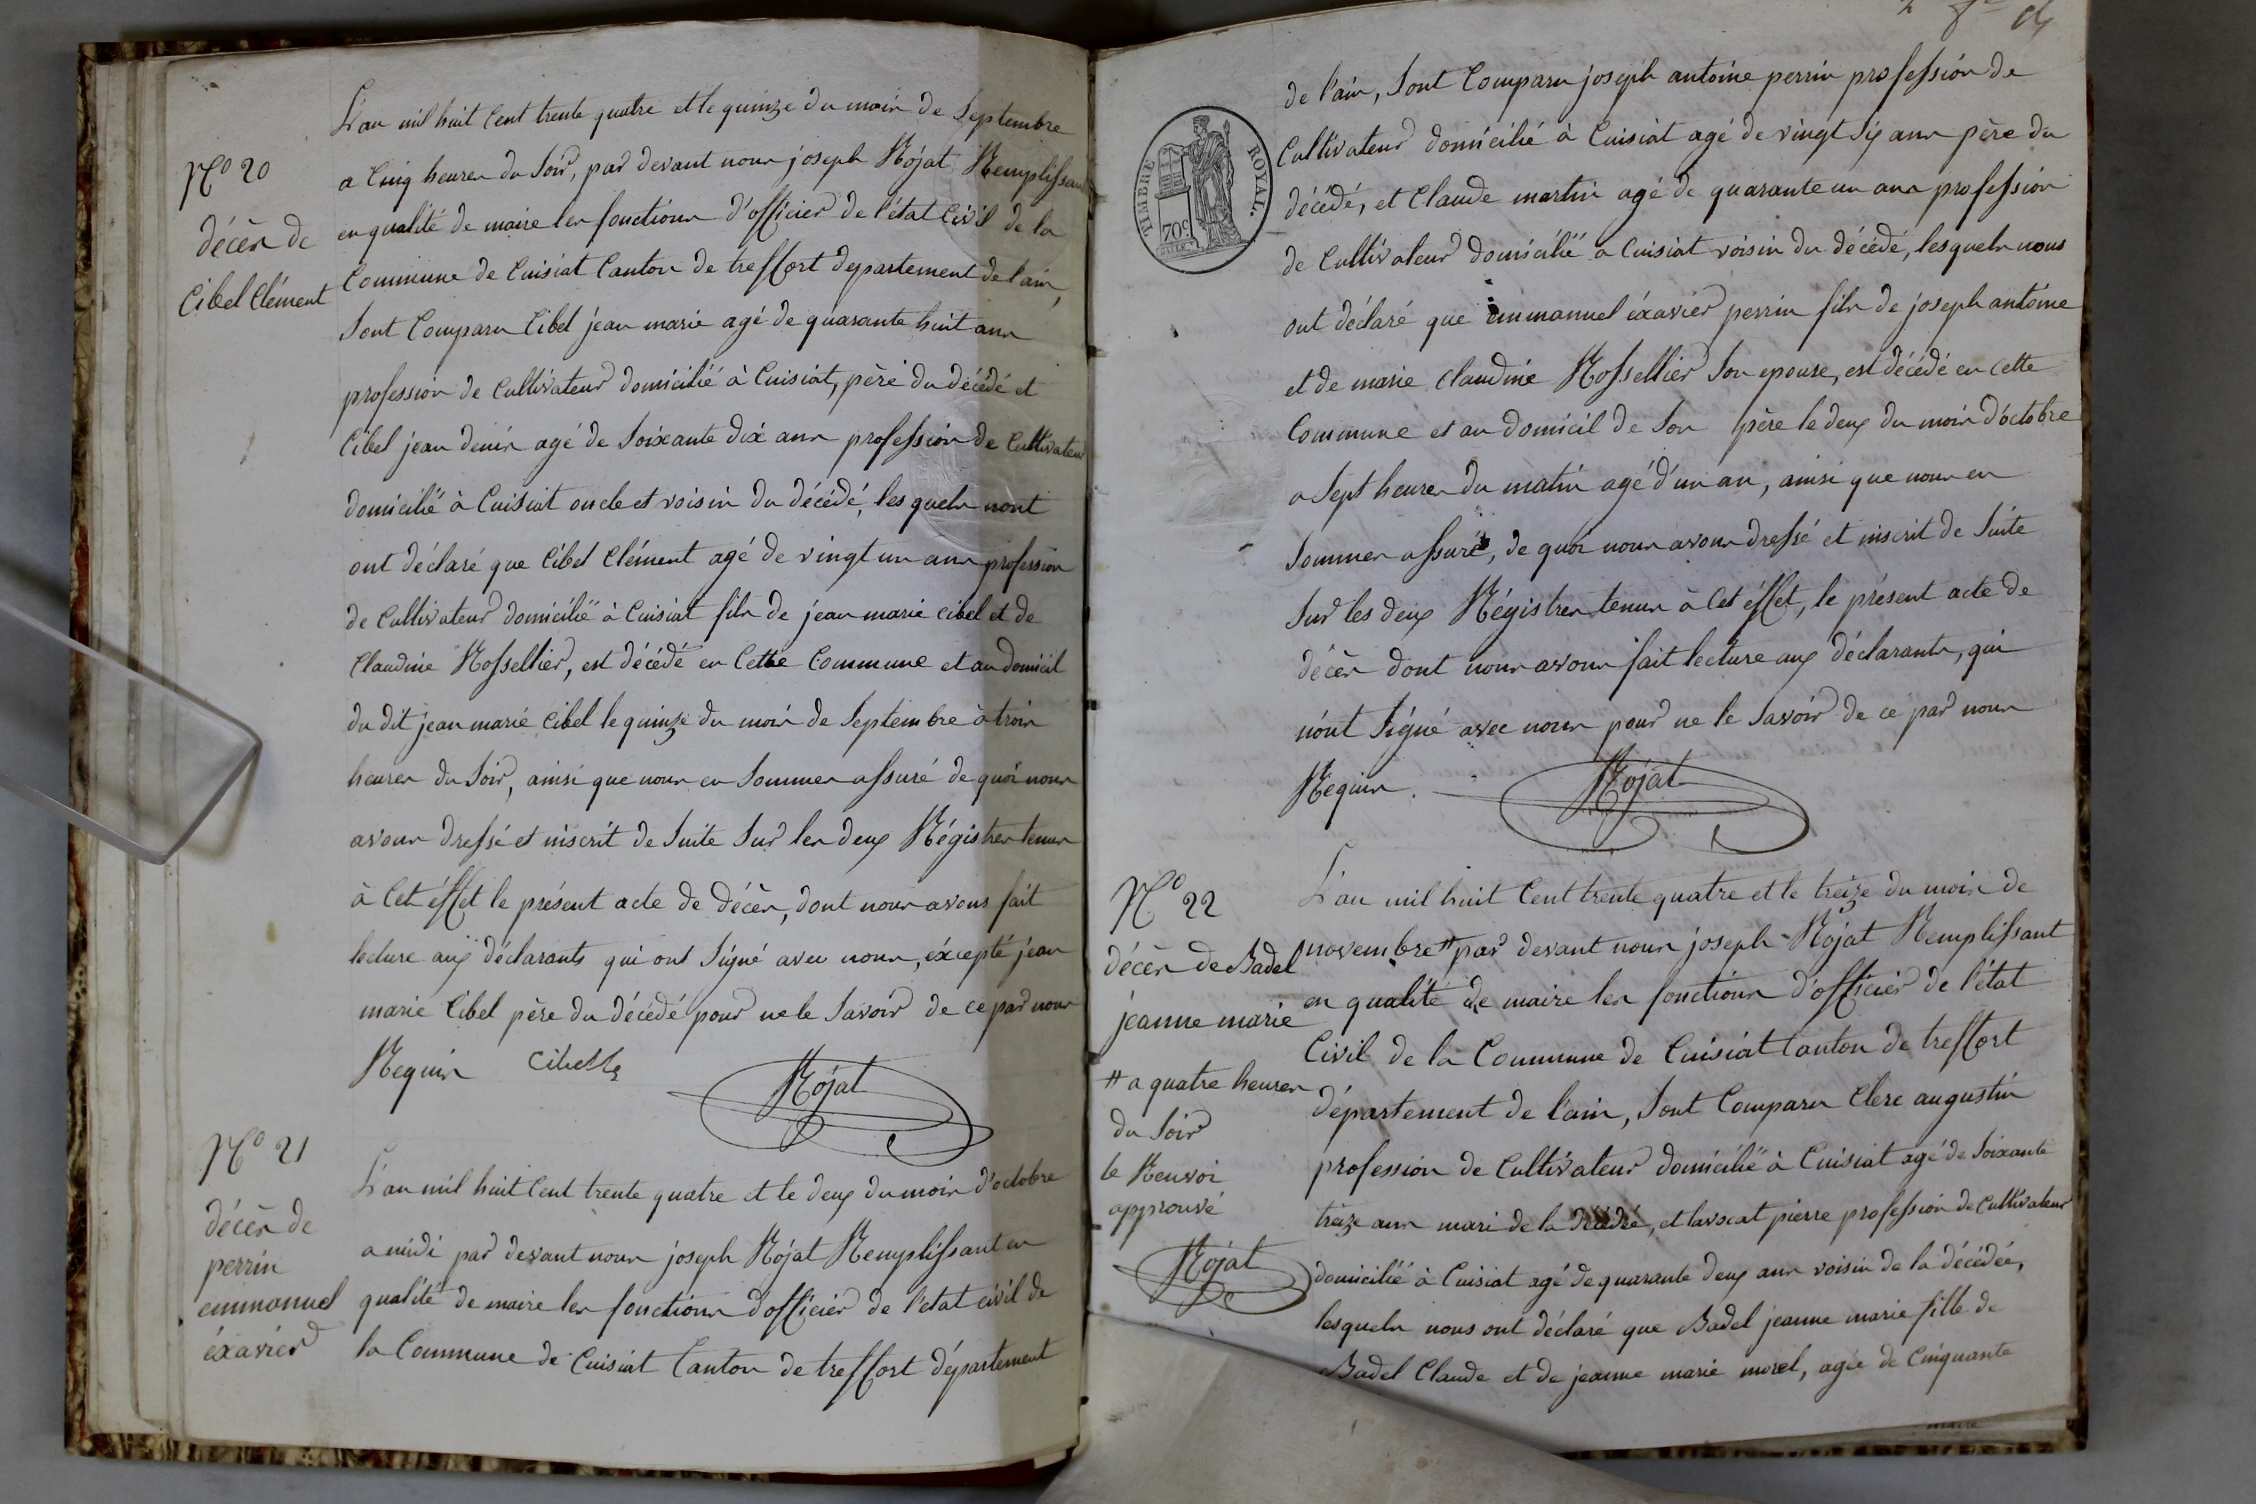 N° 20
décès de
Cibel Clément
L'an mil huit Cent trente quatre et le quinze du mois de Septembre
a Cinq heures du Soir, par devant nous joseph Rojat Remplissant
en qualité de maire les fonctions d'officier de l'état Civil de la
Commune de Cuisiat Canton de treffort departement de l'ain,
Sont Comparu Cibel jean marie agé de quarante huit ans
profession de Cultivateur domicilié à Cuisiat, père du décédé et
Cibel jean denis agé de Soixante dix ans profession de Cultivateur
domicilié à Cuisiat oncle et voisin du décédé, les quels nont
ont déclaré que Cibel Clément agé de vingt un ans profession
de Cultivateur domicilié à Cuisiat fils de jean marie cibel et de
Claudine Rossellier, est décédé en Cette Commune et au domicil
du dit jean marie Cibel le quinze du mois de Septembre à trois
heures du Soir, ainsi que nous en Sommes assuré de quoi nous
avons dressé et inscrit de Suite Sur les deux Régistres tenus
à Cet éffet le présent acte de décès, dont nous avons fait
lecture aux déclarants qui ont Signé avec nous, éxcepté jean
marie Cibel père du décédé pour ne le Savoir de ce par nous
Requis Cibel Rojat
N° 21
décès de
perrin
emmanuel
éxavier
L'an mil huit Cent trente quatre et le deux du mois d'octobre
a midi par devant nous joseph Rojat Remplissant en
qualité de maire les fonctions d'officier de l'etat civil de
la Commune de Cuisiat Canton de treffort département
TIMBRE ROYAL.
70c
de l'ain, Sont Comparu joseph antoine perrin profession de
Cultivateur domicilié à Cuisiat agé de vingt Six ans père du
décédé, et Claude martin agé de quarante un ans profession
de Cultivateur domicilié a Cuisiat voisin du décédé, lesquels nous
ont déclaré que emmanuel éxavier perrin fils de joseph antoine
et de marie Claudine Rossellier Son epouse, est décédé en cette
Commune et au domicil de Son père le deux du mois d'octobre
a Sept heures du matin agé d'un an, ainsi que nous en
Sommes assuré, de quoi nous avons dressé et inscrit de Suite
Sur les deux Régistres tenus à Cet éffet, le présent acte de
décès dont nous avons fait lecture aux déclarants, qui
n'ont Signé avec nous pour ne le Savoir de ce par nous
Requis. Rojat
N° 22
décès de Badel
jeanne marie
# a quatre heures
du Soir
le Renvoi
approuvé
Rojat
L'an mil huit Cent trente quatre et le treize du mois de
novembre # par devant nous joseph Rojat Remplissant
en qualité de maire les fonctions d'officier de l'état
Civil de la Commune de Cuisiat Canton de treffort
département de l'ain, Sont Comparu Clerc augustin
profession de Cultivateur domicilié à Cuisiat agé de Soixante
treize ans mari de la décédée, et lavocat pierre profession de Cultivateur
domicilié à Cuisiat agé de quarante deux ans voisin de la décédée,
lesquels nous ont déclaré que Badel jeanne marie fille de
Badel Claude et de jeanne marie morel, agée de Cinquante